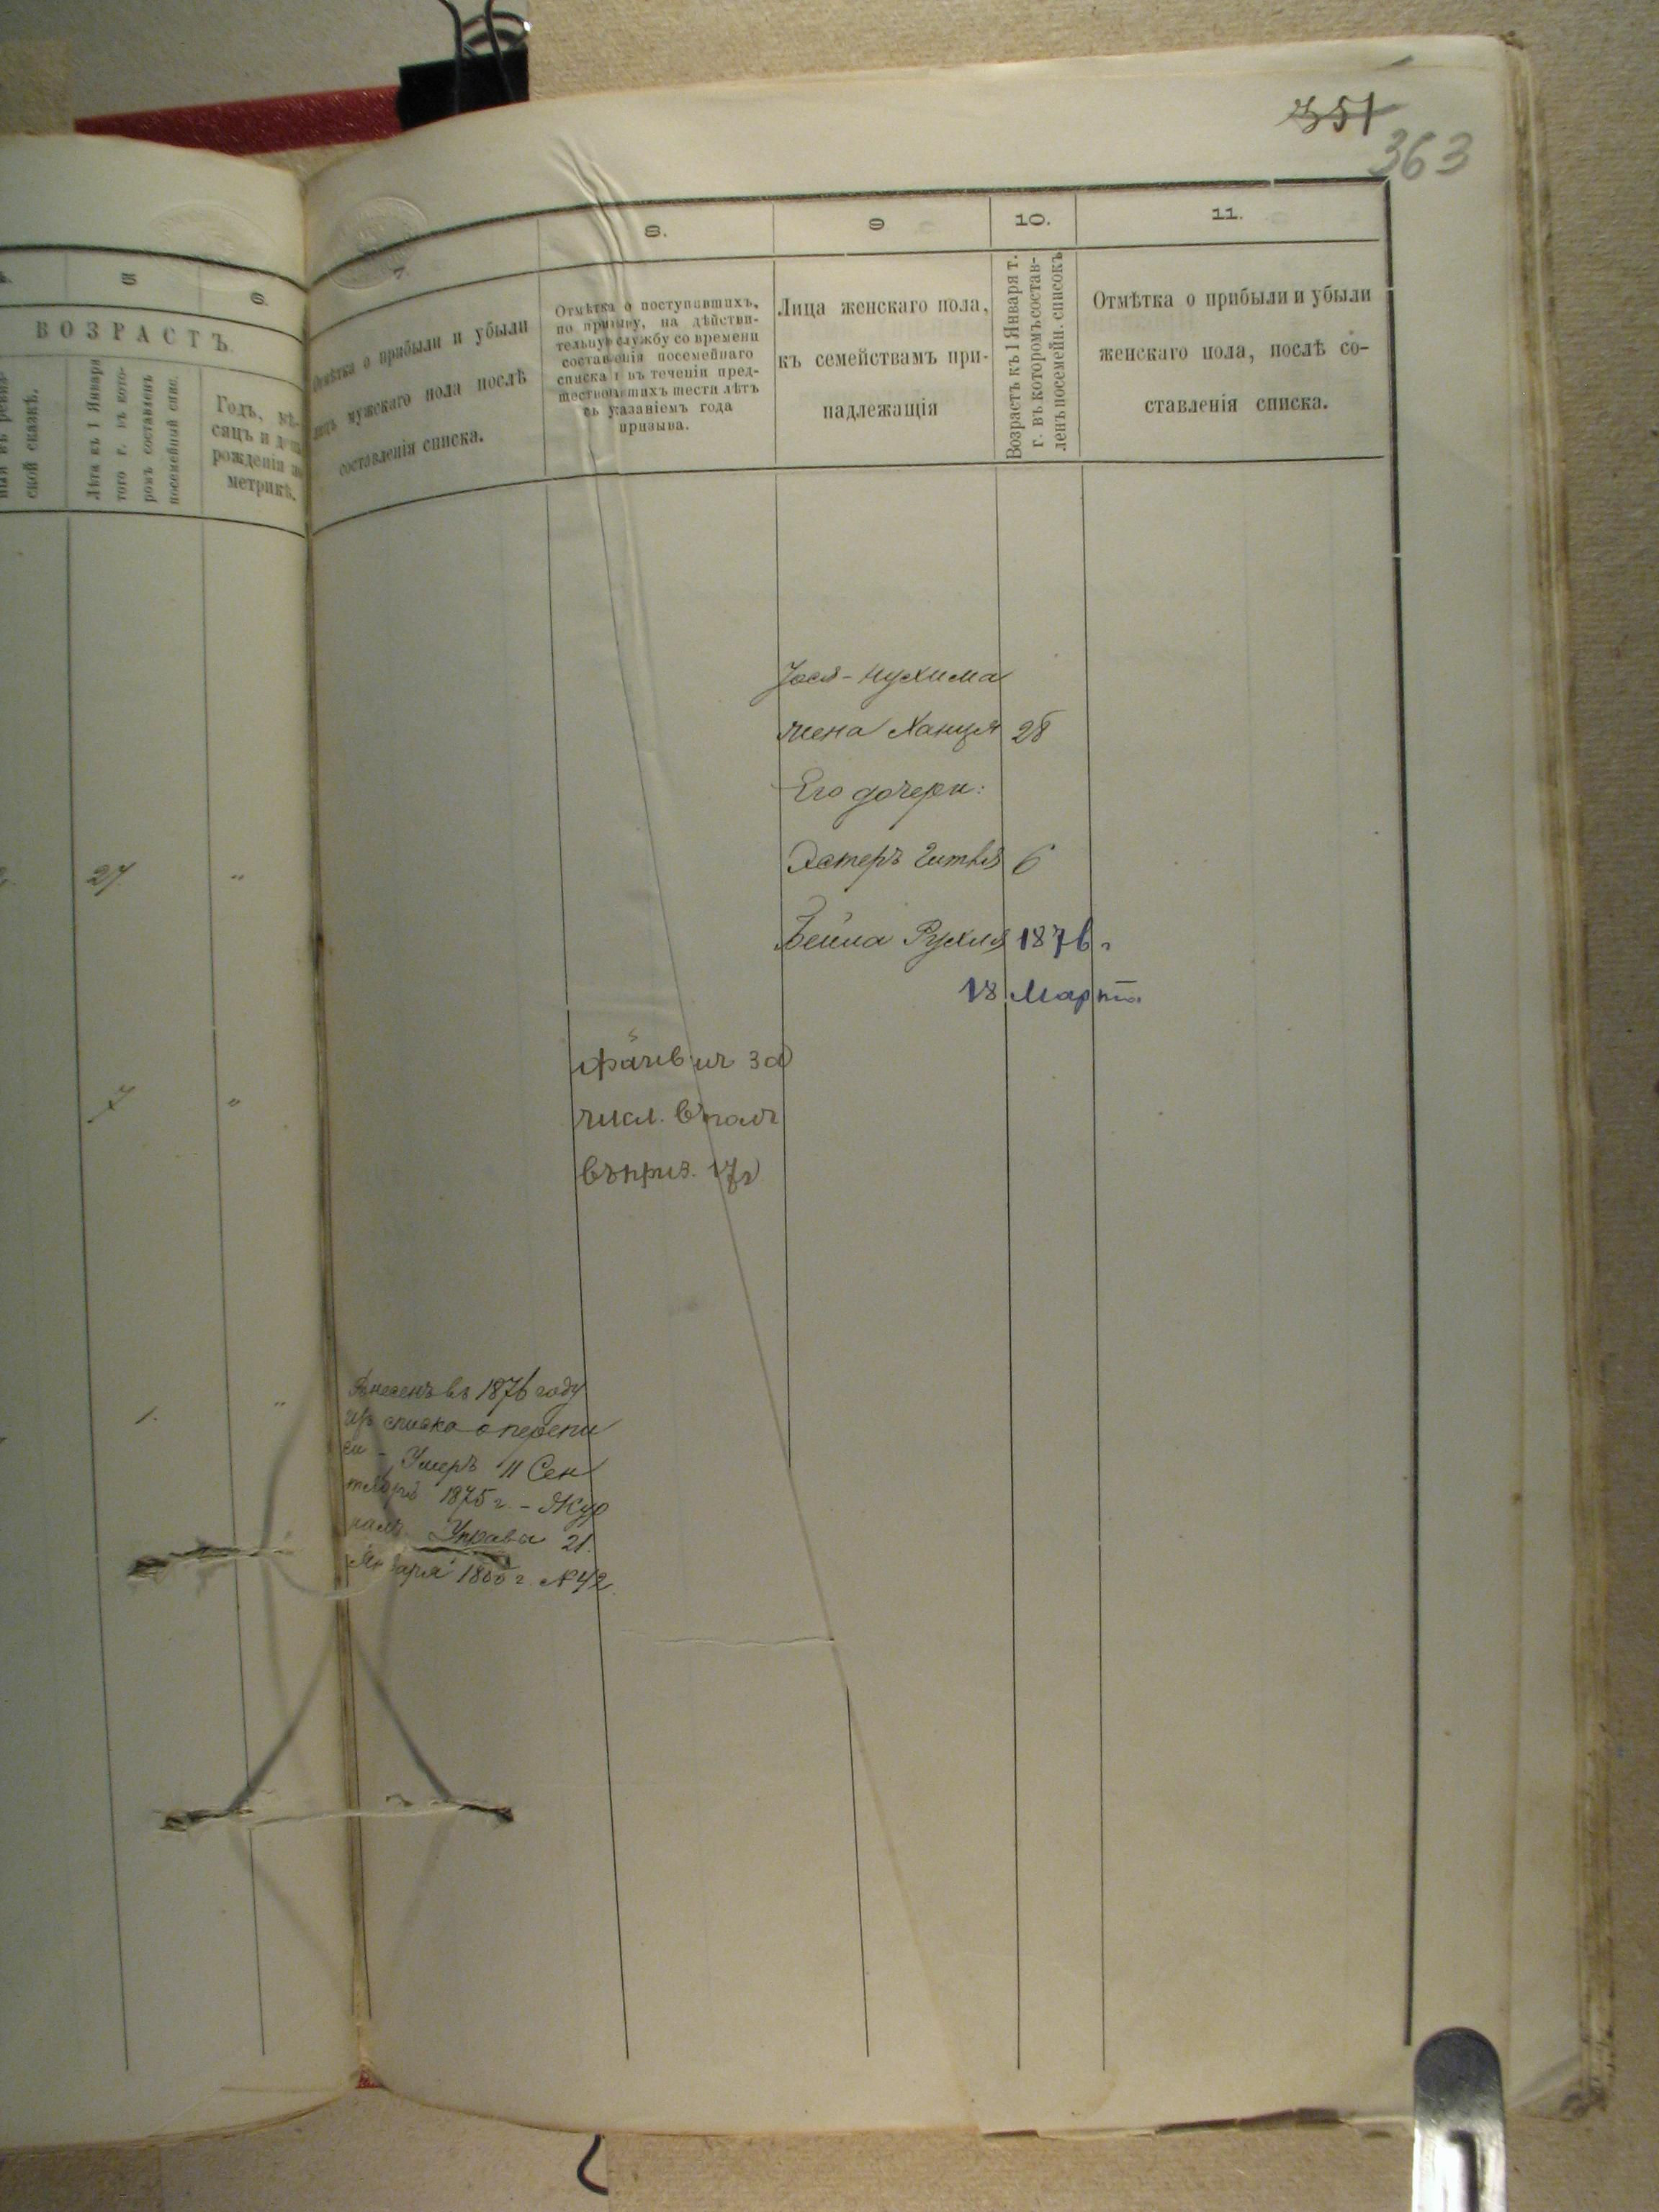 351
363
5
6.
7.
8.
9
10.
11.
ВОЗРАСТЪ.
ской сказкѣ.
Лѣта къ 1 Января
того г. въ кото-
ромъ составленъ
посемейный спис.
Годъ, мѣ-
сяцъ и день
рожденія по
метрикѣ.
Отмѣтка о прибыли и убыли
лицъ мужскаго пола послѣ
составленія списка.
Отмѣтка о поступившихъ,
по призыву, на дѣйстви-
тельную службу со времени
составленія посемейнаго
списка и въ теченіи пред-
шествовавшихъ шести лѣтъ
съ указаніемъ года
призыва.
Лица женскаго пола,
къ семействамъ при-
надлежащія
Возрастъ къ 1 Января т.
г. въ которомъ состав-
ленъ посемейн. списокъ
Отмѣтка о прибыли и убыли
женскаго пола, послѣ со-
ставленія списка.
Іося-Нухима
жена Ханця 28
Его дочери:
27 "
Эстеръ Гитля 6
Бейла Рухля 1876 г
18 Марта
7 "
числ. въ
въ приз. 17г
1. "
Внесенъ въ 1876 году
изъ списка о перепи
си - Умеръ 11 Сен
тября 1875 г. - Жур
налъ Управы 21
Января г. №42.